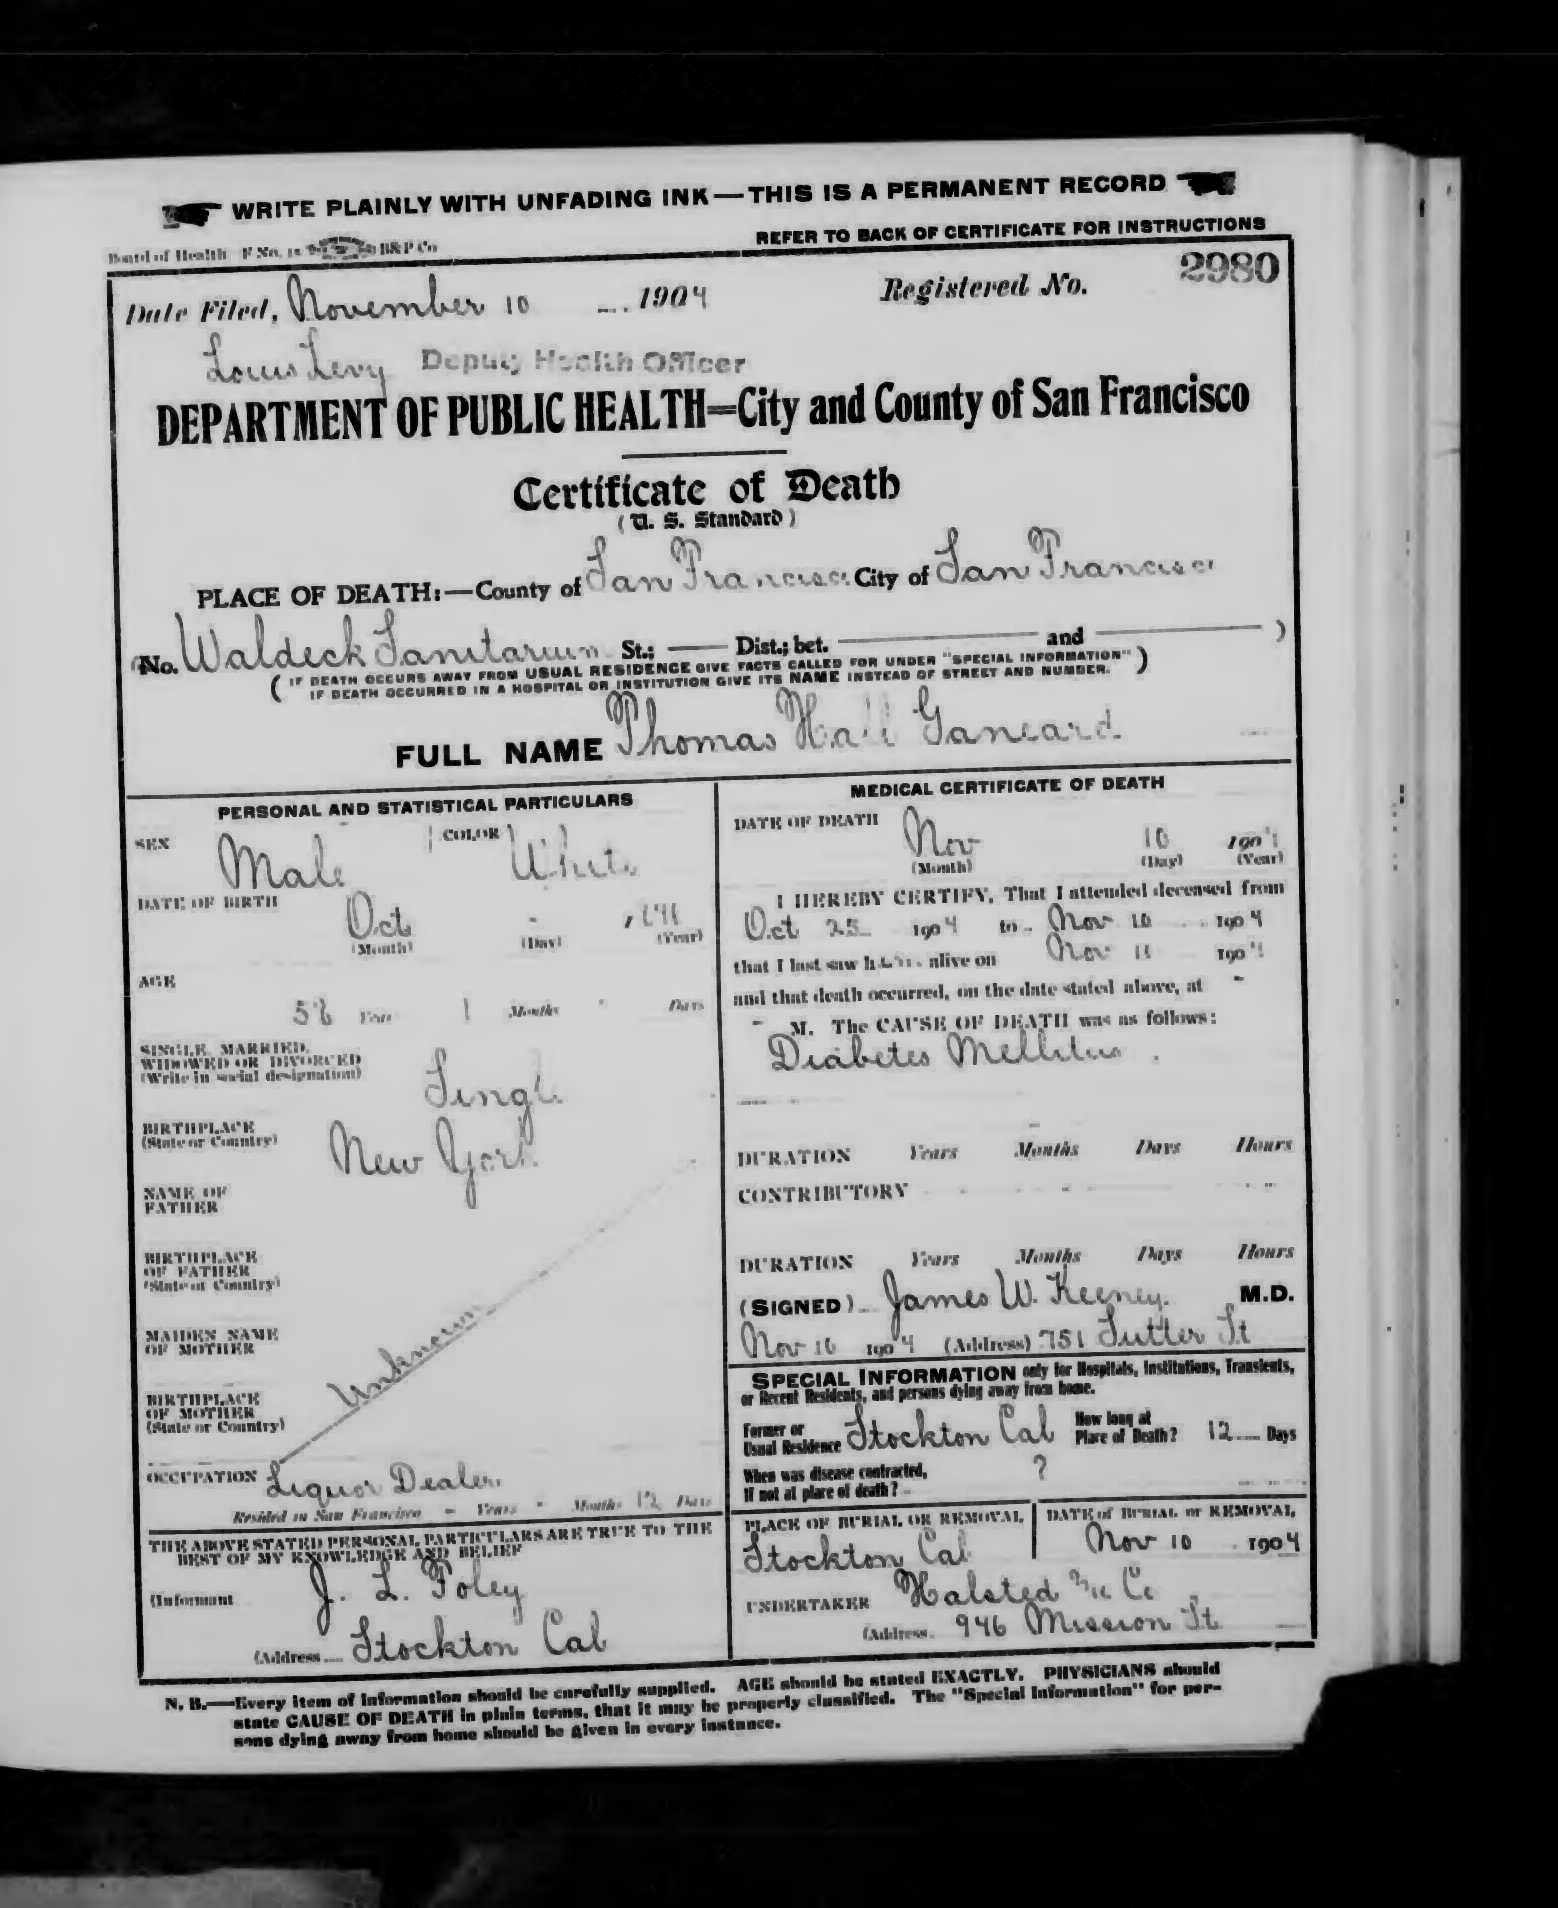 WRITE PLAINLY WITH UNFADING INK—THIS IS A PERMANENT RECORD
Board of Health F No. B&P Co REFER TO BACK OF CERTIFICATE FOR INSTRUCTIONS
Date Filed, November 10 1904 Registered No. 2980
Louis Levy Deputy Health Officer
DEPARTMENT OF PUBLIC HEALTH=City and County of San Francisco
Certificate of Death
(U. S. Standard)
PLACE OF DEATH:—County of San Francisco City of San Francisco
(No. Waldeck Sanitarium St.; Dist.; bet. and )
( IF DEATH OCCURS AWAY FROM USUAL RESIDENCE GIVE FACTS CALLED FOR UNDER "SPECIAL INFORMATION" )
IF DEATH OCCURRED IN A HOSPITAL OR INSTITUTION GIVE ITS NAME INSTEAD OF STREET AND NUMBER.
FULL NAME Thomas Hall
PERSONAL AND STATISTICAL PARTICULARS
SEX Male COLOR White
DATE OF BIRTH Oct -
(Month) (Day) (Year)
AGE
Years 1 Months Days
SINGLE, MARRIED,
WIDOWED OR DIVORCED
(Write in social designation) Single
BIRTHPLACE
(State or Country) New York
NAME OF
FATHER
BIRTHPLACE
OF FATHER
(State or Country)
MAIDEN NAME
OF MOTHER
Unknown
BIRTHPLACE
OF MOTHER
(State or Country)
OCCUPATION Liquor Dealer
Resided in San Francisco - Years - Months 12 Days
THE ABOVE STATED PERSONAL PARTICULARS ARE TRUE TO THE
BEST OF MY KNOWLEDGE AND BELIEF
(Informant J. L. Foley
(Address Stockton Cal
MEDICAL CERTIFICATE OF DEATH
DATE OF DEATH Nov 10 1904
(Month) (Day) (Year)
I HEREBY CERTIFY, That I attended deceased from
Oct 25 1904 to Nov 10 1904
that I last saw him alive on Nov 1904
and that death occurred, on the date stated above, at -
- M. The CAUSE OF DEATH was as follows:
Diabetes Mellitus
DURATION Years Months Days Hours
CONTRIBUTORY
DURATION Years Months Days Hours
(SIGNED) James W. Keeney. M.D.
Nov 10 1904 (Address) 751 Sutter St
SPECIAL INFORMATION only for Hospitals, Institutions, Transients,
or Recent Residents, and persons dying away from home.
Former or
Usual Residence Stockton Cal How long at
Place of Death? 12 Days
When was disease contracted,
If not at place of death? ?
PLACE OF BURIAL OR REMOVAL DATE of BURIAL or REMOVAL
Stockton Cal Nov 10 1904
UNDERTAKER Halsted & Co
(Address 946 Mission St
N. B.—Every item of information should be carefully supplied. AGE should be stated EXACTLY. PHYSICIANS should
state CAUSE OF DEATH in plain terms, that it may be properly classified. The "Special Information" for per-
sons dying away from home should be given in every instance.